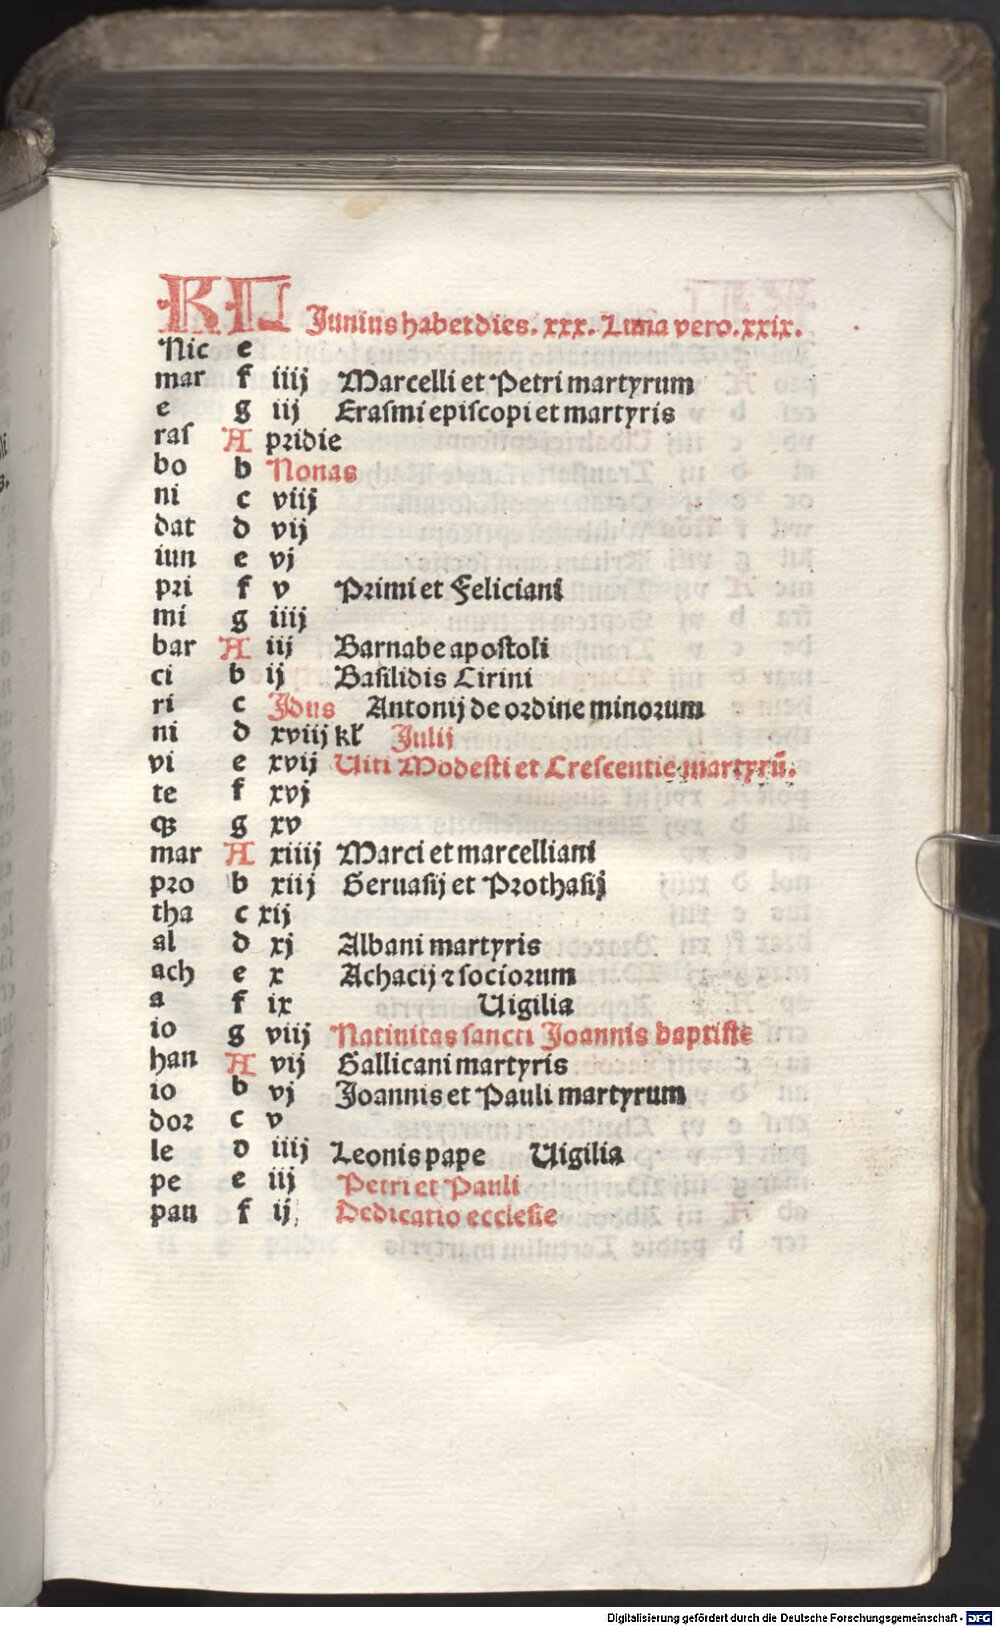 KL Junius habet dies. xxx. Luna vero. xxix.
Nic e
mar f iiij Marcelli et Petri martyrum
e g iij Erasmi episcopi et martyris
ras A pridie
bo b Nonas
ni c viij
dat d vij
iun e vj
pri f v Primi et Feliciani
mi g iiij
bar A iij Barnabe apostoli
ci b ij Basilidis Cirini
ri c Idus Antonij de ordine minorum
ni d xviij kł Julij
vi e xvij Viti Modesti et Crescentie martyrū.
te f xvj
qȝ g xv
mar A xiiij Marci et marcelliani
pro b xiij Geruasij et Prothasij
tha c xij
al d xj Albani martyris
ach e x Achacij ⁊ sociorum
a f ix Uigilia
io g viij Natiuitas sancti Joannis baptiste
han A vij Gallicani martyris
io b vj Joannis et Pauli martyrum
dor c v
le d iiij Leonis pape Uigilia
pe e iij Petri et Pauli
pau f ij Dedicatio ecclesie
Digitalisierung gefördert durch die Deutsche Forschungsgemeinschaft - DFG